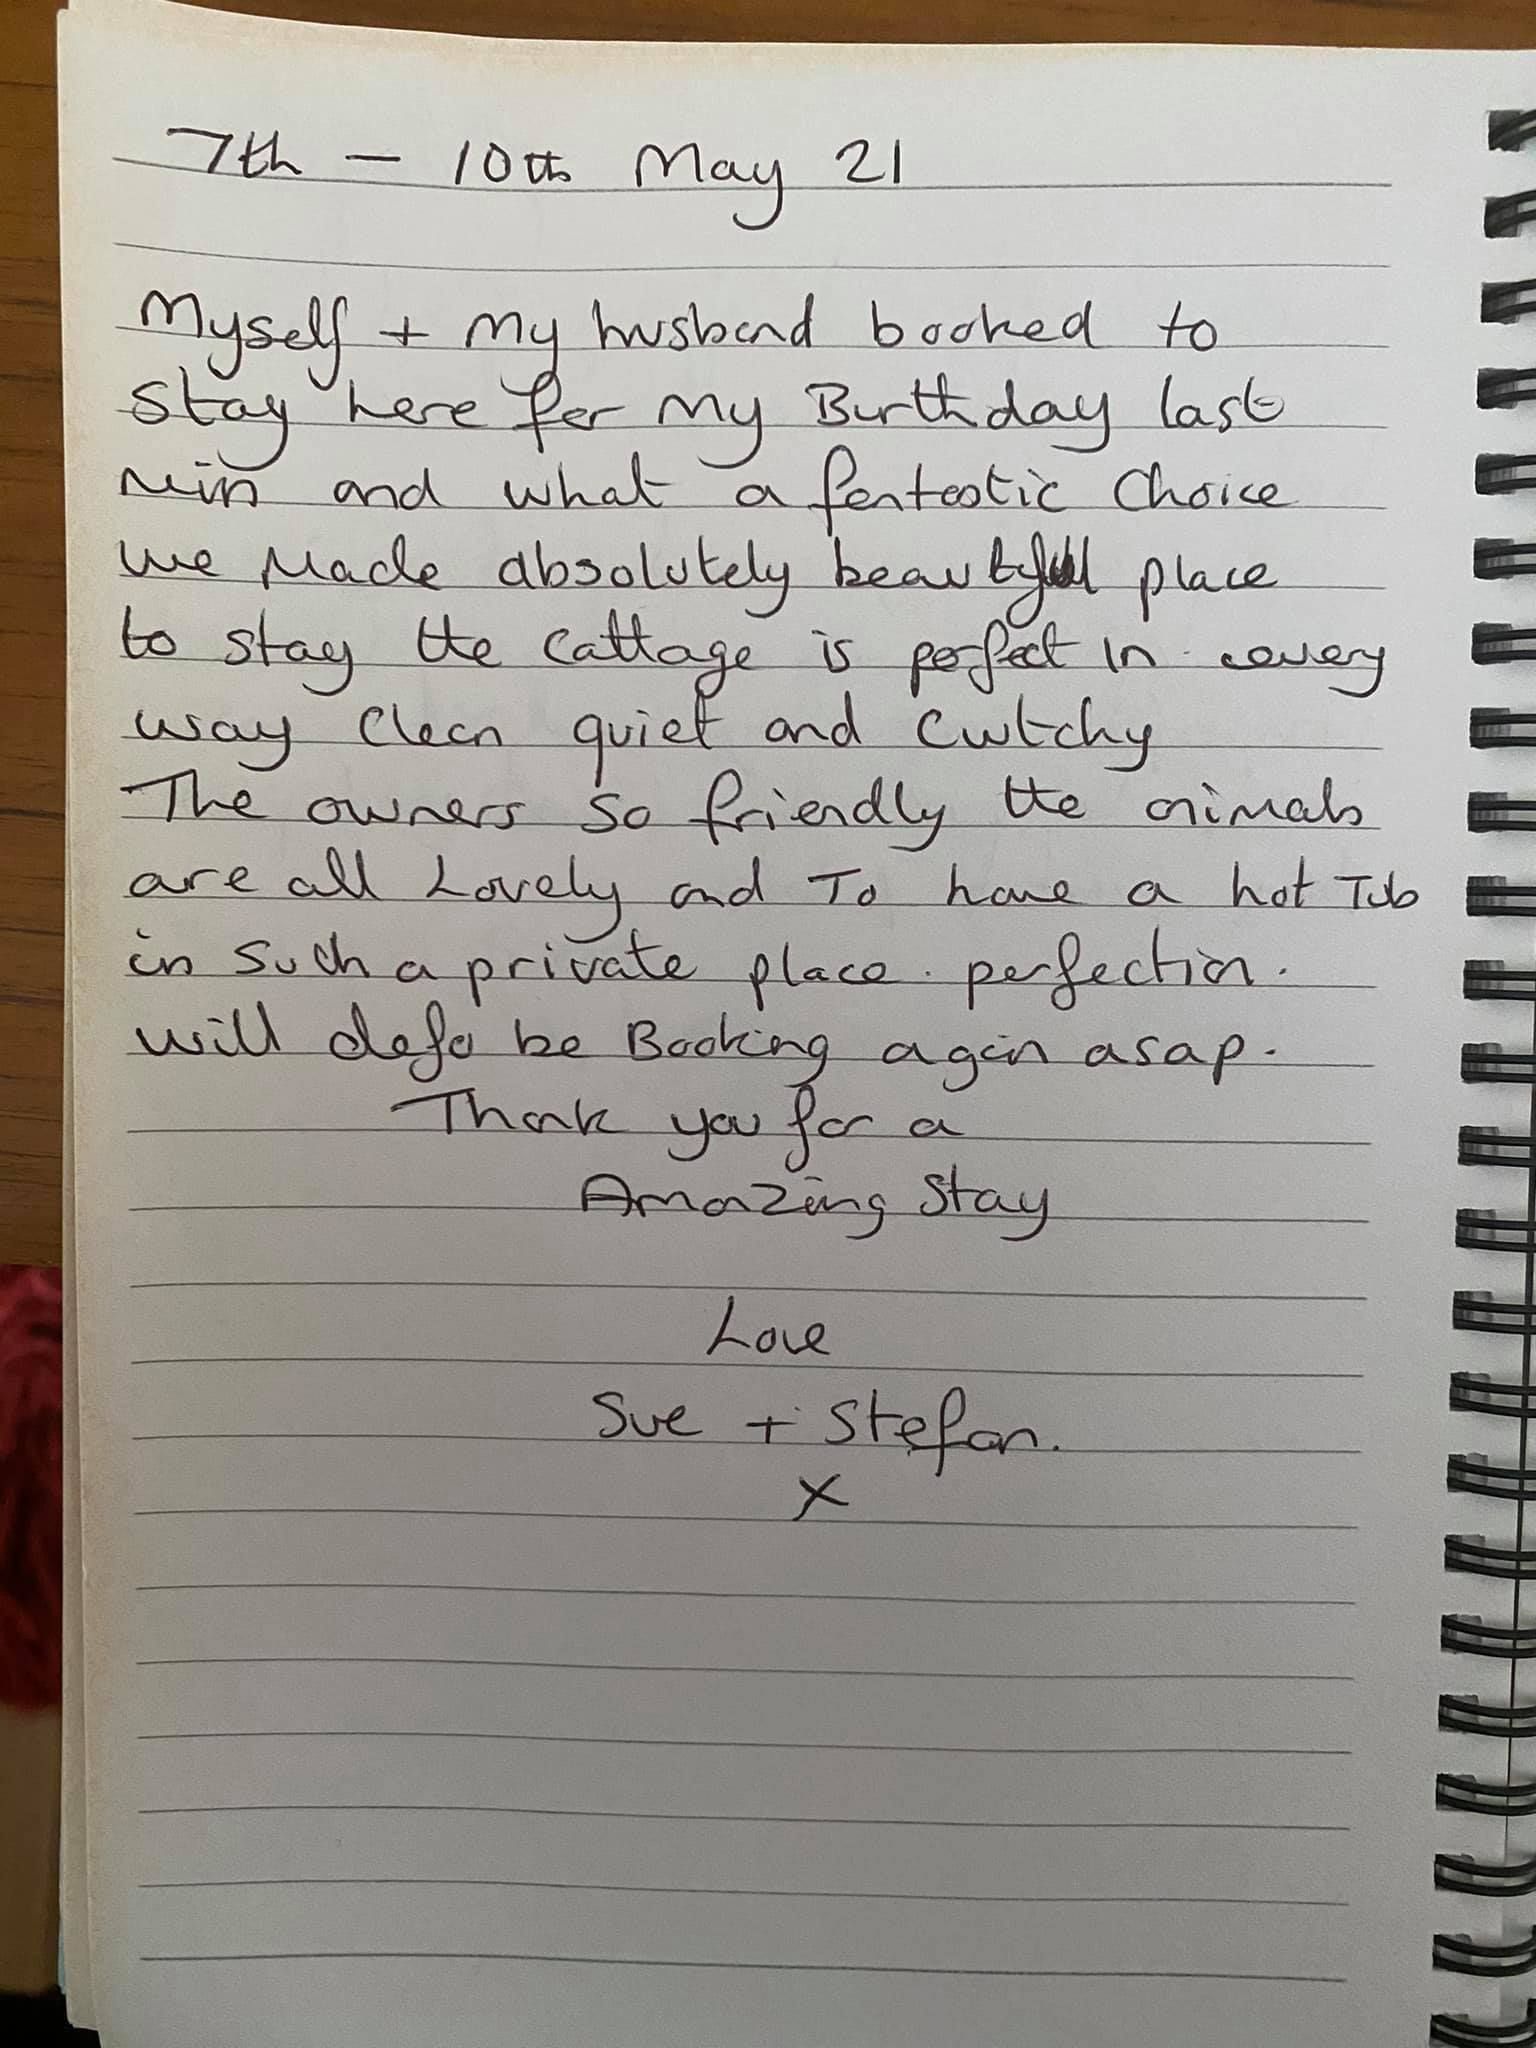 7th - 10th May 21
Myself + My husband booked to
stay here for My Birthday last
min and what a fantastic choice
we Made absolutely beautyful place
to stay the cattage is perfect in every
way clean quiet and cwtchy
The owners so friendly the animals
are all Lovely and To have a hot Tub
in such a private place. perfection.
will defo be Booking again asap.
Thank you for a
Amazing stay
Love
Sue + Stefan.
X